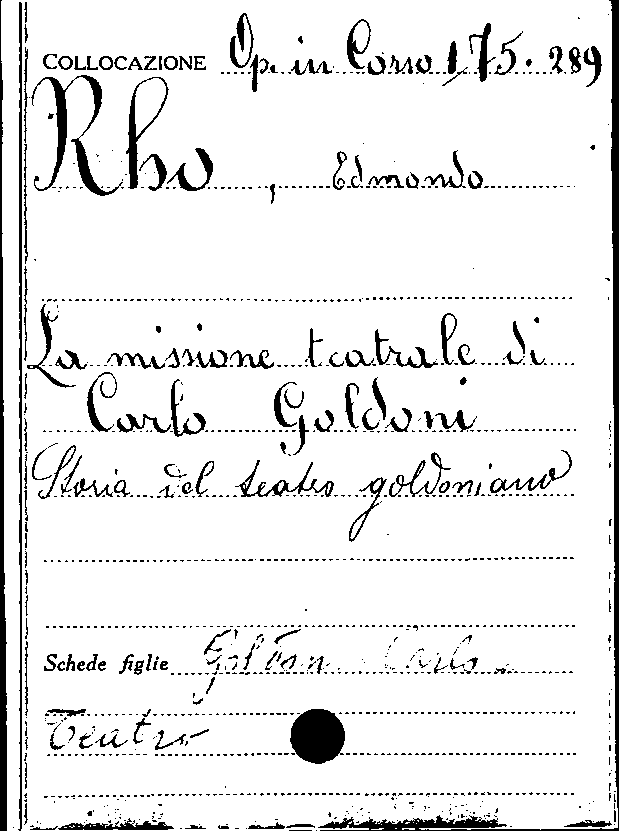 COLLOCAZIONE Op. in Corso 175. 289
Rho, Edmondo
La missione teatrale di
Carlo Goldoni
Storia del teatro goldoniano
Schede figlie Goldoni Carlo -
Teatro